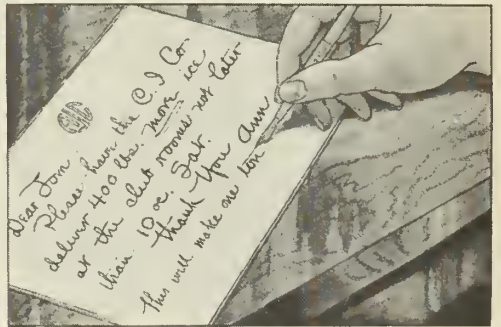 Dear Tom.
Please have the C. I Co
deliver 400 lbs. more ice
at the club rooms not later
than 10 oc. Sat.
Thank You Ann
This will make one ton